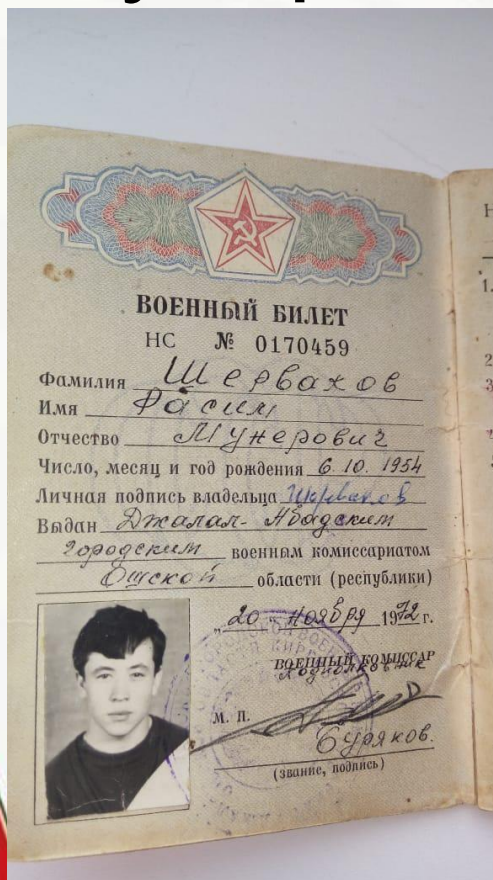 ВОЕННЫЙ БИЛЕТ
НС № 0170459
Фамилия Шервахов
Имя Расим
Отчество Мунерович
Число, месяц и год рождения 6. 10. 1954
Личная подпись владельца
Выдан Джалал-Абадским
городским военным комиссариатом
Ошской области (республики)
„20 " ноября 1972 г.
ВОЕННЫЙ КОМИССАР
подполковник
М. П.
Буряков.
(звание, подпись)